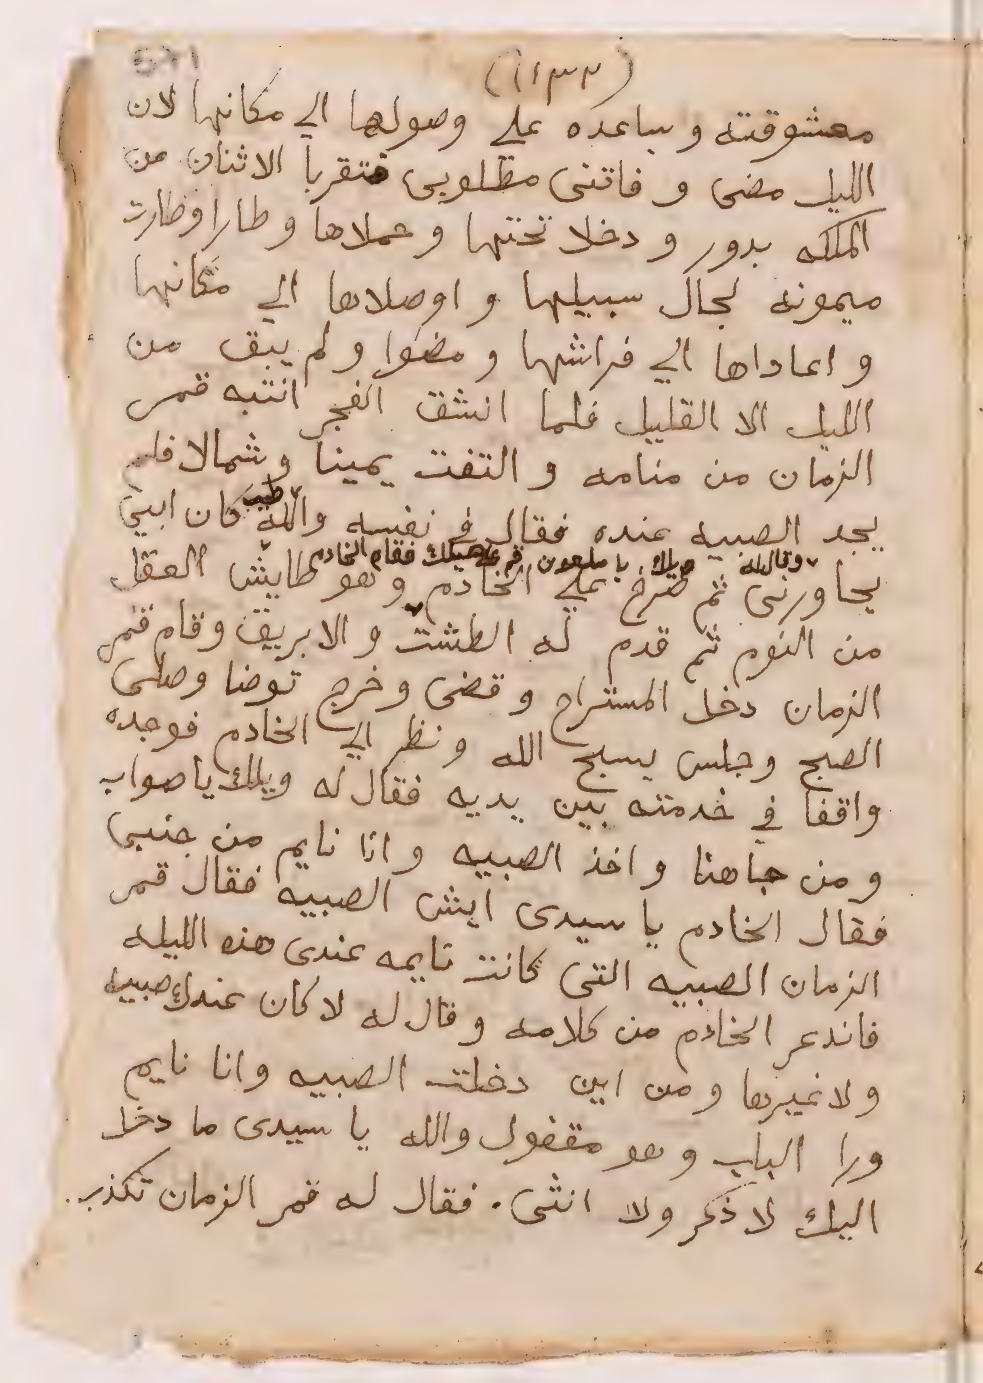 571
(١١٣٢)
معشوقته وساعده على وصولها الي مكانها لان
الليل مضى و فاتنى مطلوبى فتقربا الاثنان من
الملكه بدور و دخلا تحتها و حملاها و طارا وطارت
ميمونه لحال سبيلها و اوصلاها الي مكانها
و اعاداها الي فراشها و مضوا و لم يبق من
الليل الا القليل فلما انشق الفجر انتبه قمر
الزمان من منامه و التفت يمينا و شمالا فلم
يجد الصبيه عنده فقال في نفسه والله طيب كان ابي
وقال له ويلك يا ملعون قم على حيلك فقام الخادم
يحاورنى ثم صرخ على الخادم و هو طايش العقل
من النوم ثم قدم له الطشت و الابريق وقام قمر
الزمان دخل المستراح و قضى و خرج توضا وصلى
الصبح وجلس يسبح الله ونظر الي الخادم فوجده
واقفا في خدمته بين يديه فقال له ويلك يا صواب
و من جاهنا و اخذ الصبيه و انا نايم من جنبى
فقال الخادم يا سيدى ايش الصبيه فقال قمر
الزمان الصبيه التى كانت نايمه عندى هذه الليله
فاندعر الخادم من كلامه و قال له لا كان عندك صبيه
ولا غيرها و من اين دخلت الصبيه وانا نايم
ورا الباب و هو مقفول والله يا سيدى ما دخل
اليك لا ذكر ولا انثى. فقال له قمر الزمان تكذب